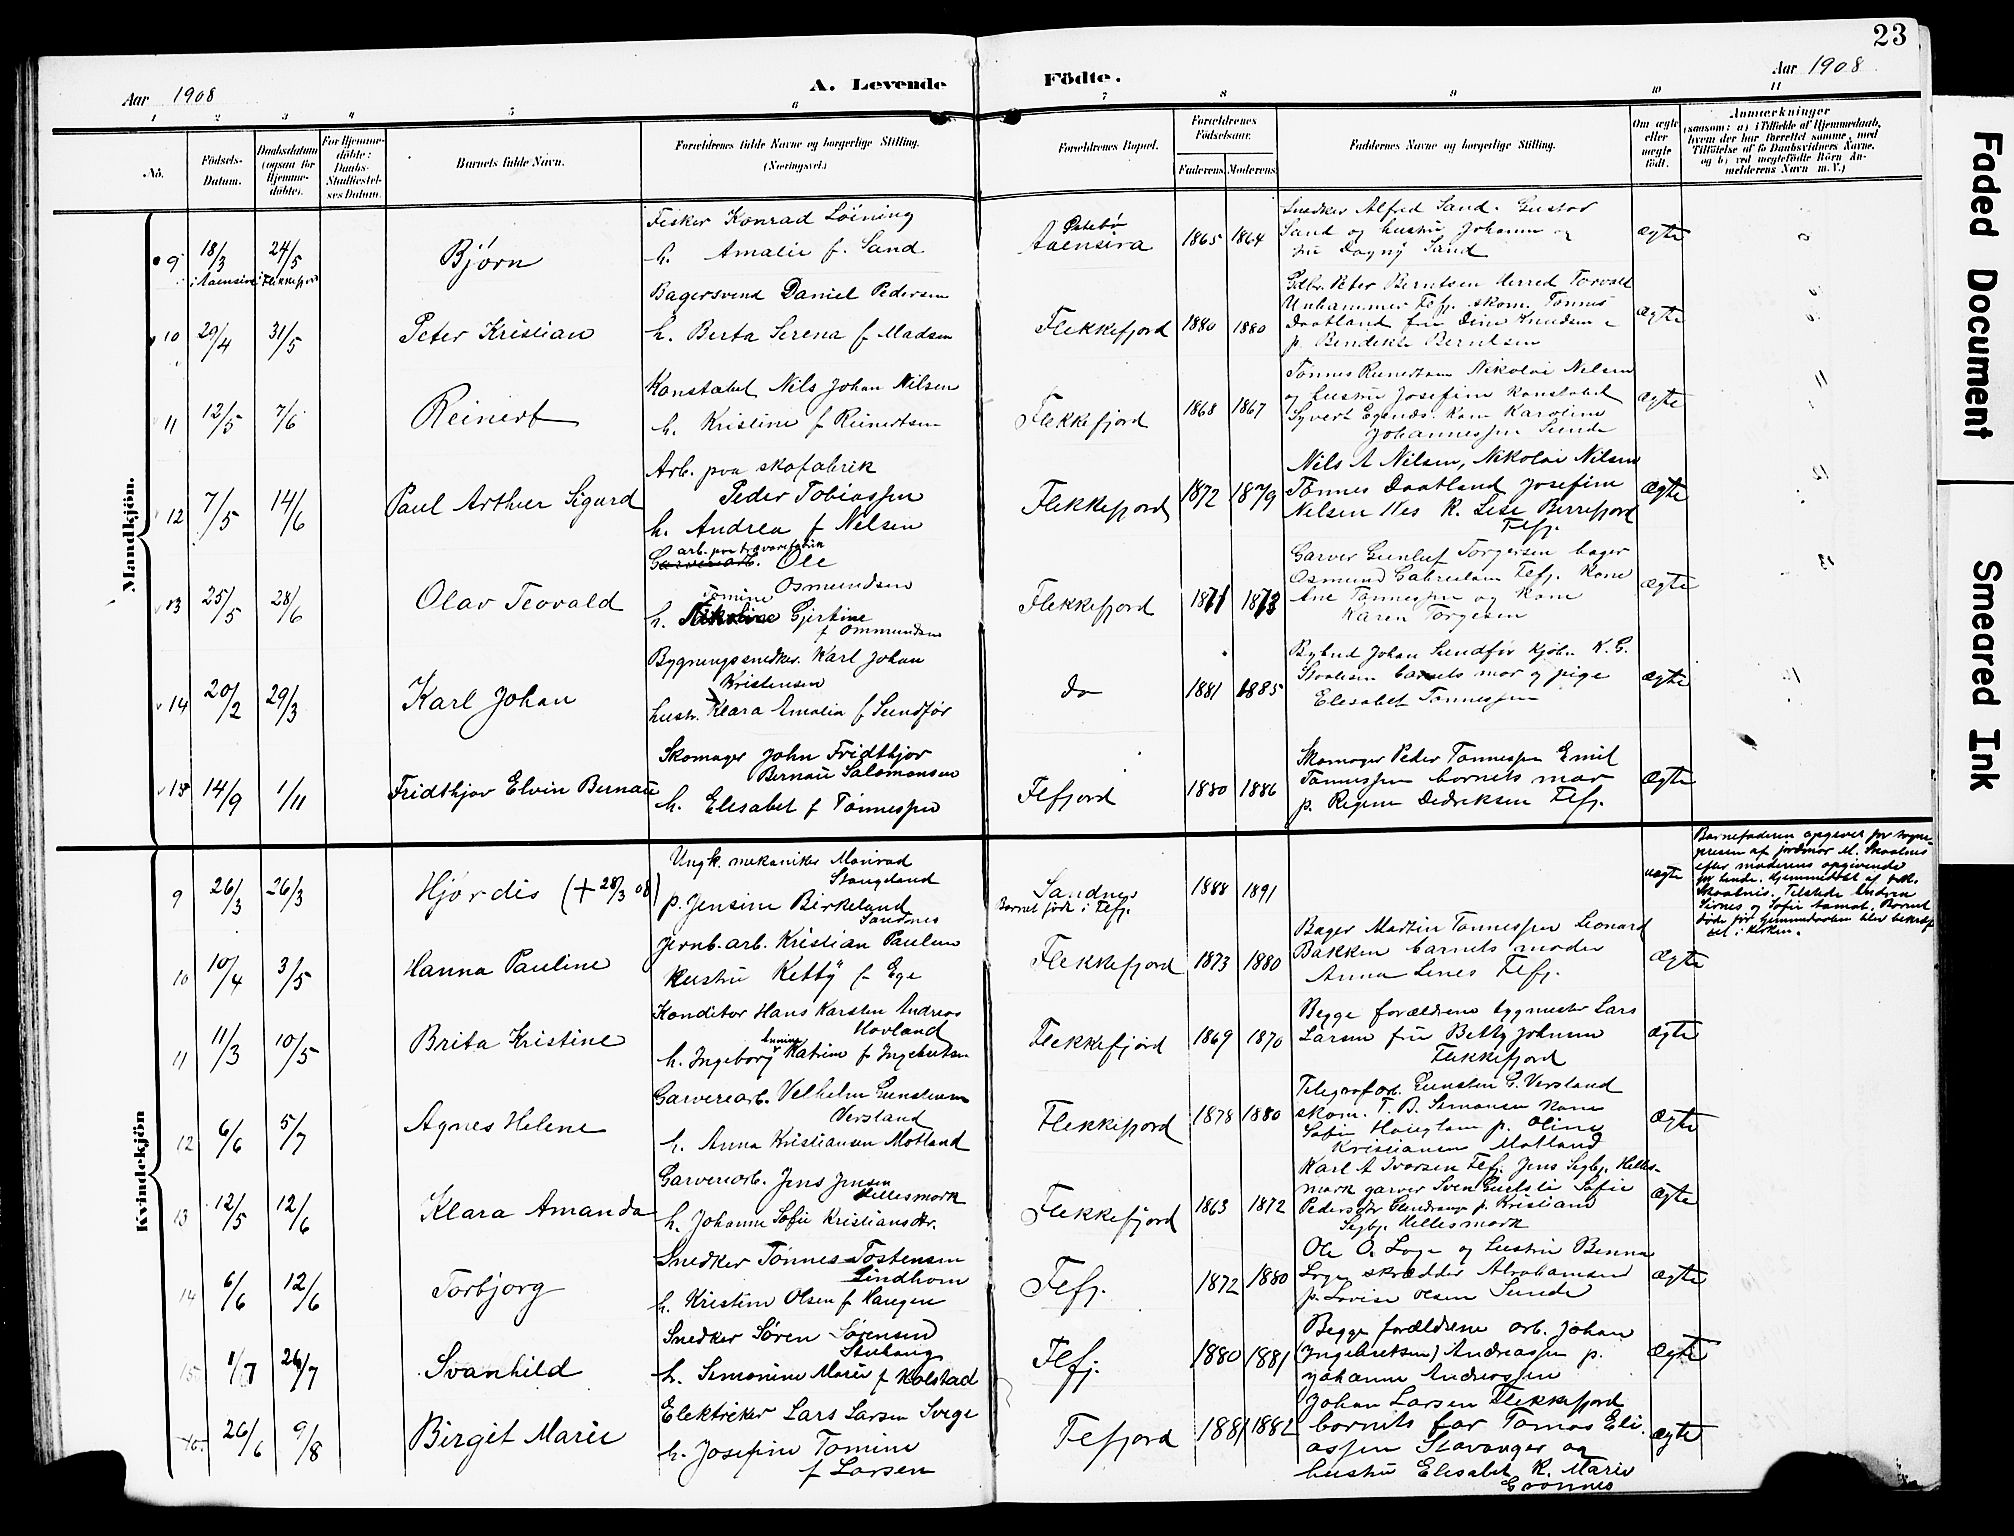 23
Aar 1908
A. Levende
Födte.
Aar 1908
1 2 3 4 5 6 7 8 9 10 11
No.
Födsels-Datum.
Daabsdatum (ogsaa for Hjemme-døbte).
For Hjemme-døbte: Daabs-Stadfæstel-ses Datum.
Barnets fulde Navn.
Forældrenes fulde Navne og borgerlige Stilling.
(Næringsvei.)
Forældrenes Bopæl.
Forældrenes Fødselsaar.
Faderens. Moderens.
Faddernes Navne og borgerlige Stilling.
Om ægte eller uægte født.
Anmærkninger
(saasom: a) i Tilfælde af Hjemmedaab,
hvem der har forrettet samme, med
Tilføielse af to Daabsvidners Navne.
og b) ved uægtefödte Börn An-
melderens Navn m. V.)
Mandkjön.
9 18/3 24/5 Bjørn
i Aaensire i Flekkefjord
Fisker Konrad Löining
h. Amalie f. Sand
Aaensira
1865 1864
Snedker Alfred Sand. Gustav
Sand og hustru Johanna og
fru Dagny Sand
ægte
10 29/4 31/5 Peter Kristian
Bagersvend Daniel Pedersen
h. Berta Serena f Madsen
Flekkefjord
1880 1880
Peter Berntsen Herred Torvald
Unhammer Fefj. skom. Tønnes
Daatland fru Dina Knudsen
p. Bendikte Berntsen
ægte
11 12/5 7/6 Reinert
Konstabel Nils Johan Nilsen
h. Kristine f Reinertsen
Flekkefjord
1868 1867
Tønnes Reinertsen Nikolai Nilsen
og hustru Josefine Konstabel
Syvert Kone Karoline
Johannessen Sunde
ægte
12 7/5 14/6 Paul Arthur Sigurd
Arb. paa skofabrik
Peder Tobiassen
h. Andrea f Nilsen
Flekkefjord
1872 1879
Nils A Nilsen, Nikolai Nilsen
Tønnes Daatland Josefine
Nilsen Nes R. Lise Birrefjord
Flfj.
ægte
13 25/5 28/6 Olav Teovald
arb. paa trævarefabrik
Garveriarb. Ole
Osmundsen
Tomine
h. Nikoline Gjertine
f Ommundsen
Flekkefjord
1871 1873
Garver Gunluf Torgersen bager
Osmund Gabrielsen Flfj. Kone
Ane Tønnessen og Kone
Karen Torgersen
ægte
14 20/2 29/3 Karl Johan
Bygningssnedker. Karl Johan
Kristensen
hustr. Klara Amalia f Sundför
do
1881 1885
Bybud Johan Sundför kjöb. K. G.
barnets mor og pige
Elisabet Tønnessen
ægte
15 14/9 1/11 Fridthjov Elvin Bernau
Skomager John Fridthjov
Bernau Salomonsen
h. Elisabet f Tønnessen
Flfjord
1880 1886
Skomager Peder Tønnessen Emil
Tønnessen barnets mor
p. Regine Dedriksen Flfj.
ægte
Kvindekjön
9 26/3 26/3 Hjördis (+ 28/3 08)
Ungk. mekaniker Monrad
Stangeland
p. Jensine Birkeland
Sandnes
Sandnes
Barnet født i Flfj.
1888 1891
uægte
Barnefaderen opgives for sogne-
presten af jordmor M. Skaalnes
efter moderens opgivende
10 10/4 3/5 Hanna Pauline
Jernb. arb. Kristian Paulsen
Hustru Ketty f Ege
Flekkefjord
1873 1880
Bager Martin Tønnessen Leonard
Bakken barnets moder
Anna Lines Flfj.
ægte
11 11/3 10/5 Brita Kristine
Konditor Hans Karsten Andreas
Hovland
h. Ingeborg Katrine f Ingebretsen
Flekkefjord
1869 1870
Begge forældrene bygmester Lars
Larsen fru Betty Johnsen
Flekkefjord
ægte
12 6/6 5/7 Agnes Helene
Garveriarb. Velhelm Gunstensen
Versland
h. Anna Kristiansen Motland
Flekkefjord
1878 1880
Telegrafarb. Gunsten G. Versland
skom. T. B. Simonsen Kone
Sofie p. Oline
Kristiansen Motland
ægte
13 12/5 12/6 Klara Amanda
Garveriarb. Jens Jensen
Hellesmark
h. Johanne Sofie Kristiansdtr.
Flekkefjord
1863 1872
Karl A Ivarsen Flfj. Jens Segbj. Helles-
mark garver Sven Sofie
Pedersdtr p. Kristiane
Segbj. Hellesmark
ægte
14 6/6 12/6 Torbjorg
Snedker Tønnes Tostensen
Lindhom
h. Kristine Olsen f Haugen
Fefj.
1872 1880
Ole O. Loge og hustru Benna
Loge skrædder Abrahamsen
p. Lovise Olsen Sunde
ægte
15 1/7 26/7 Svanhild
Snedker Søren Sørensen
Stubaug
h. Simonine Marie f Kolstad
Flfj.
1880 1881
Begge forældrene arb. Johan
(Ingebretsen) Andreassen p.
Johanne Andreassen
ægte
26/6 9/8 Birgit Marie
Elektriker Lars Larsen Svege
h. Josefine Tomine
f Larsen
Flefjord
1881 1882
Johan Larsen Flekkefjord
barnets far Tomas Eli-
assen Stavanger og
hustru Elisabet R. Marie
Grønnes
ægte
Faded Document
Smeared Ink